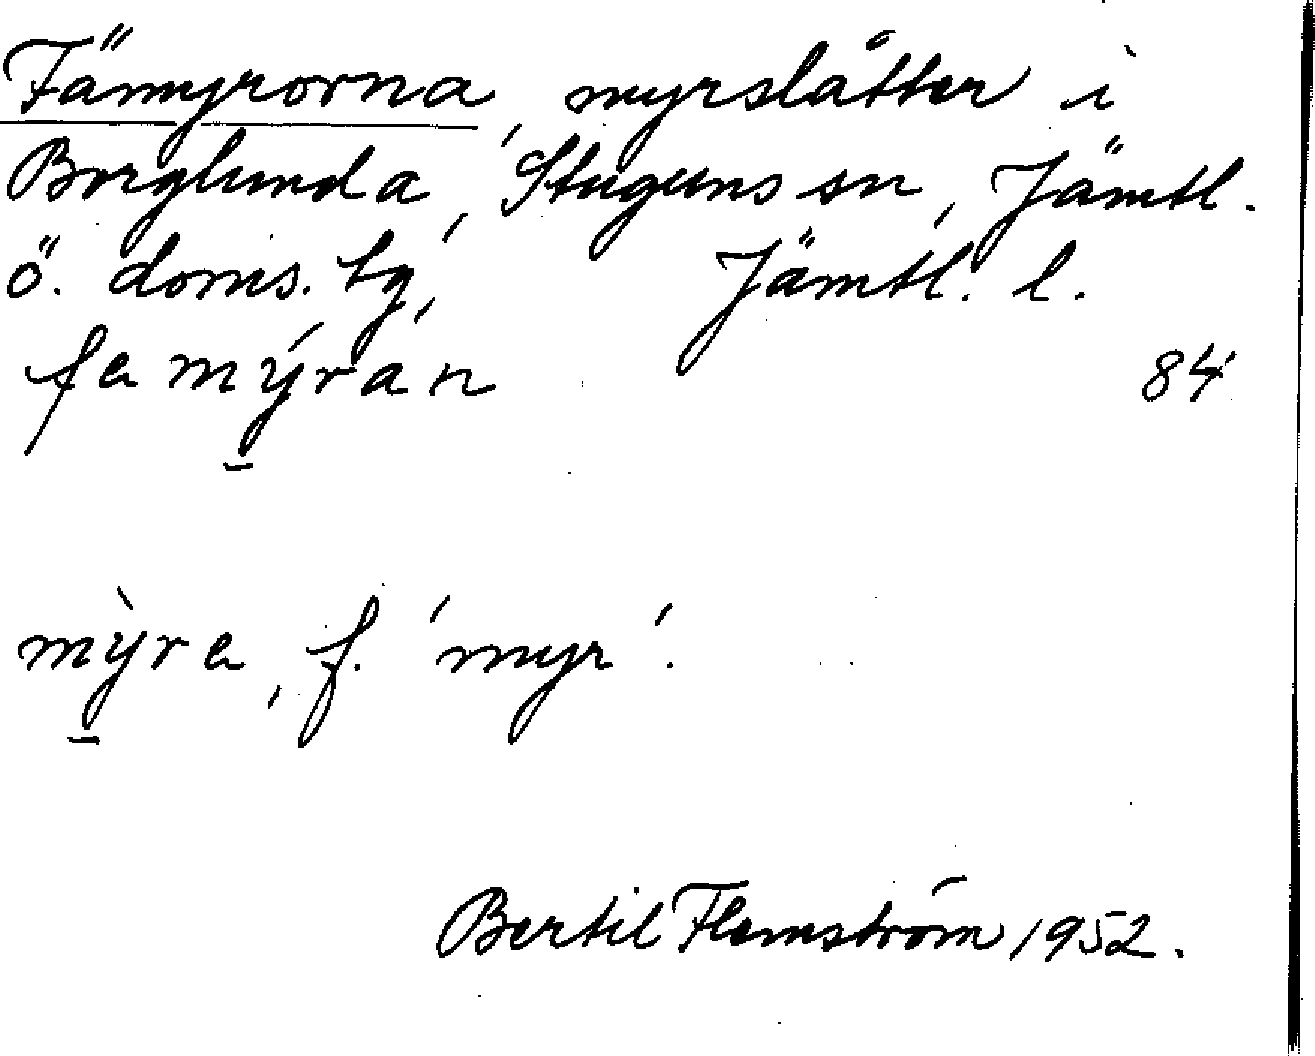 Fämyrorna, myrslåtter i
Borglunda, Stuguns sn, Jämtl.
ö. doms. tg, Jämtl. l.
fɐmýrán 84
mỳrɐ, f. 'myr'.
Bertil Flemström 1952.